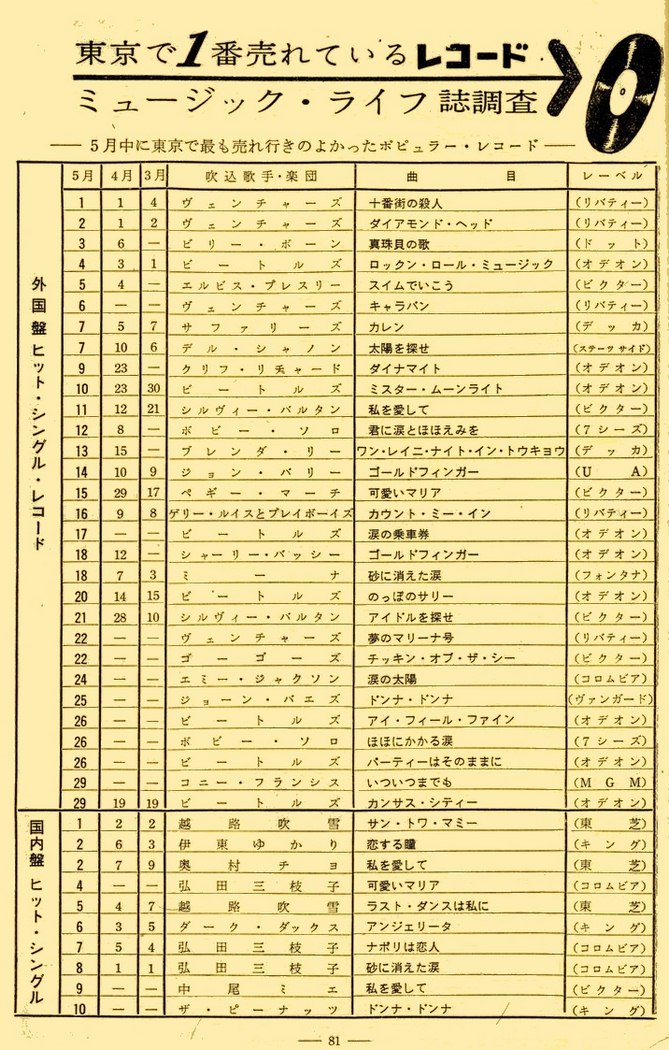 東京で1番売れているレコード
ミュージック・ライフ誌調査
── 5月中に東京で最も売れ行きのよかったポピュラー・レコード ──
5月 4月 3月 吹込歌手・楽団 曲目 レーベル
外国盤 ヒット・シングル・レコード
1 1 4 ヴェンチャーズ 十番街の殺人 (リバティー)
2 1 2 ヴェンチャーズ ダイアモンド・ヘッド (リバティー)
3 6 ― ビリー・ボーン 真珠貝の歌 (ドット)
4 3 1 ビートルズ ロックン・ロール・ミュージック (オデオン)
5 4 ― エルビス・プレスリー スイムでいこう (ビクター)
6 ― ― ヴェンチャーズ キャラバン (リバティー)
7 5 7 サファリーズ カレン (デッカ)
7 10 6 デル・シャノン 太陽を探せ (ステーツサイド)
9 23 ― クリフ・リチャード ダイナマイト (オデオン)
10 23 30 ビートルズ ミスター・ムーンライト (オデオン)
11 12 21 シルヴィー・バルタン 私を愛して (ビクター)
12 8 ― ボビー・ソロ 君に涙とほほえみを (7シーズ)
13 15 ― ブレンダ・リー ワン・レイニ・ナイト・イン・トウキョウ (デッカ)
14 10 9 ジョン・バリー ゴールドフィンガー (UA)
15 29 17 ペギー・マーチ 可愛いマリア (ビクター)
16 9 8 ゲリー・ルイスとプレイボーイズ カウント・ミー・イン (リバティー)
17 ― ― ビートルズ 涙の乗車券 (オデオン)
18 12 ― シャーリー・バッシー ゴールドフィンガー (オデオン)
18 7 3 ミーナ 砂に消えた涙 (フォンタナ)
20 14 15 ビートルズ のっぽのサリー (オデオン)
21 28 10 シルヴィー・バルタン アイドルを探せ (ビクター)
22 ― ― ヴェンチャーズ 夢のマリーナ号 (リバティー)
22 ― ― ゴーゴーズ チッキン・オブ・ザ・シー (ビクター)
24 ― ― エミー・ジャクソン 涙の太陽 (コロムビア)
25 ― ― ジョーン・バエズ ドンナ・ドンナ (ヴァンガード)
26 ― ― ビートルズ アイ・フィール・ファイン (オデオン)
26 ― ― ボビー・ソロ ほほにかかる涙 (7シーズ)
26 ― ― ビートルズ パーティーはそのままに (オデオン)
29 ― ― コニー・フランシス いついつまでも (MGM)
29 19 19 ビートルズ カンサス・シティー (オデオン)
国内盤 ヒット・シングル
1 2 2 越路吹雪 サン・トワ・マミー (東芝)
2 6 3 伊東ゆかり 恋する瞳 (キング)
2 7 9 奥村チヨ 私を愛して (東芝)
4 ― ― 弘田三枝子 可愛いマリア (コロムビア)
5 4 7 越路吹雪 ラスト・ダンスは私に (東芝)
6 3 5 ダーク・ダックス アンジェリータ (キング)
7 5 4 弘田三枝子 ナポリは恋人 (コロムビア)
8 1 1 弘田三枝子 砂に消えた涙 (コロムビア)
9 ― ― 中尾ミエ 私を愛して (ビクター)
10 ― ― ザ・ピーナッツ ドンナ・ドンナ (キング)
― 81 ―